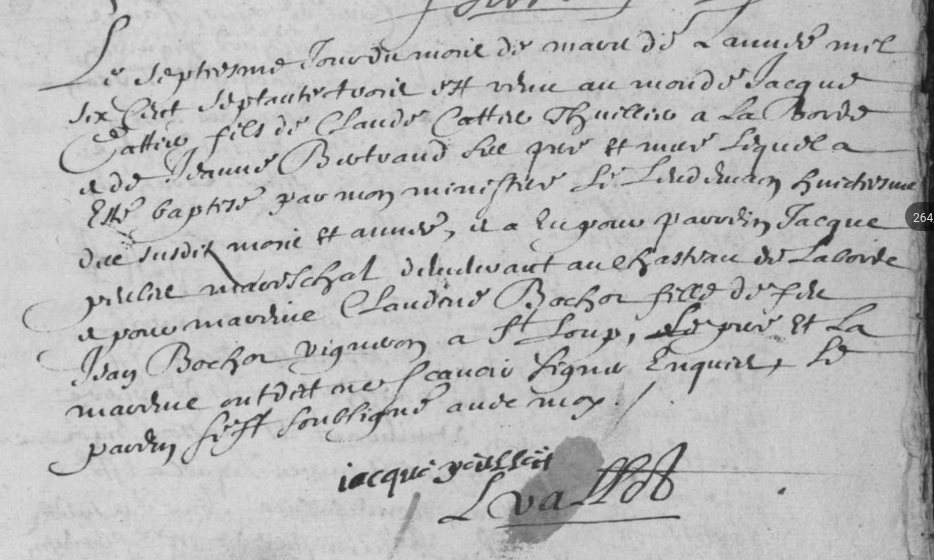 Le septiesme Jour du mois de mars de Lannée mil
six Cent septante trois est venu au monde Jacque
Cattin fils de Claude Cattin Thuillier a La Borde
et de Jeanne Bertrand ses pere et mere Lequel a
Esté baptisé par mon ministere Le Lendemain huictiesme
des susdit mois et année, il a Eu pour parrein Jacque
mareschal demeurant au chasteau de Laborde
et pour marreine Claudine Bochot fille de feu
Jean Bochot vigneron a St Loup, Le pere et La
marreine ont dit ne scavoir signer Enquis, Le
parrein s'est soubsigné avec moy
jacque
264